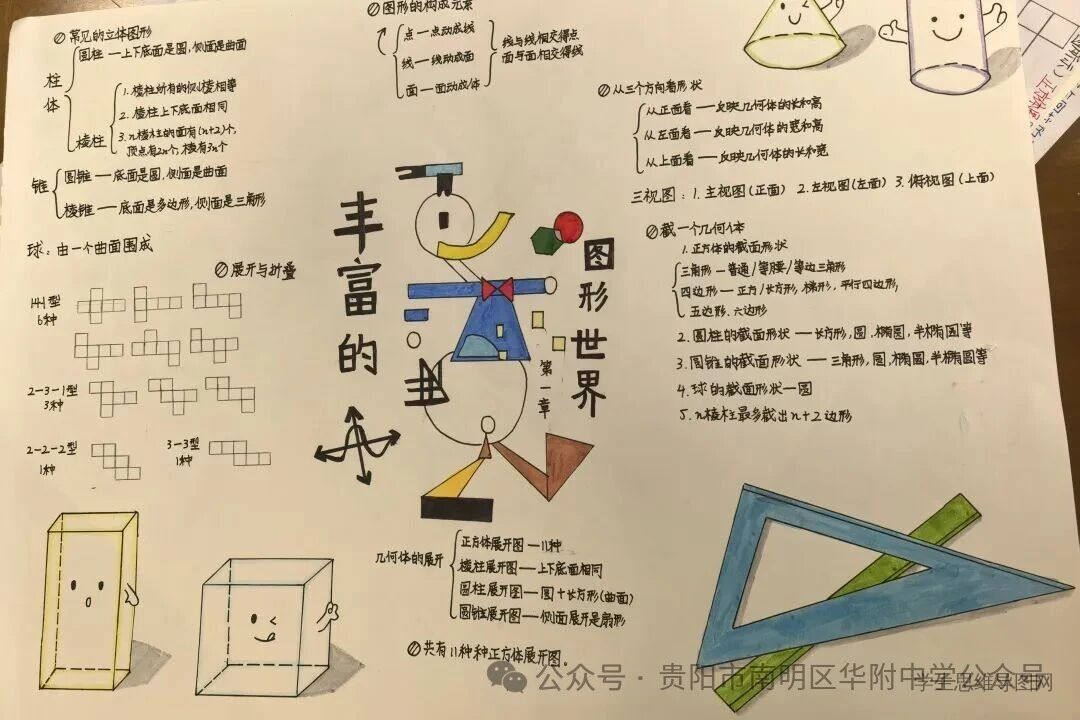 常见的立体图形
柱体
圆柱—上下底面是圆,侧面是曲面
棱柱
1.棱柱所有的侧棱相等
2.棱柱上下底面相同
3.n棱柱的面有(n+2)个,
顶点有2n个,棱有3n个
锥
圆锥—底面是圆,侧面是曲面
棱锥—底面是多边形,侧面是三角形
球:由一个曲面围成
展开与折叠
141型
6种
2-3-1型
3种
2-2-2型
1种
3-3型
1种
图形的构成元素
点—点动成线
线—线动成面
面—面动成体
线与线相交得点
面与面相交得线
丰富的
图形世界
第一章
几何体的展开
正方体展开图—11种
棱柱展开图—上下底面相同
圆柱展开图—圆+长方形(曲面)
圆锥展开图—侧面展开是扇形
共有11种种正方体展开图。
从三个方向看形状
从正面看——反映几何体的长和高
从左面看——反映几何体的宽和高
从上面看——反映几何体的长和宽
三视图:1.主视图(正面) 2.左视图(左面) 3.俯视图(上面)
截一个几何体
1.正方体的截面形状
三角形—普通/等腰/等边三角形
四边形—正方/长方形,梯形,平行四边形,
五边形.六边形
2.圆柱的截面形状——长方形,圆,椭圆,半椭圆等
3.圆锥的截面形状——三角形,圆,椭圆,半椭圆等
4.球的截面形状—圆
5.n棱柱最多截出n+2边形
公众号·贵阳市南明区华附中学公众号
学生思维导图网